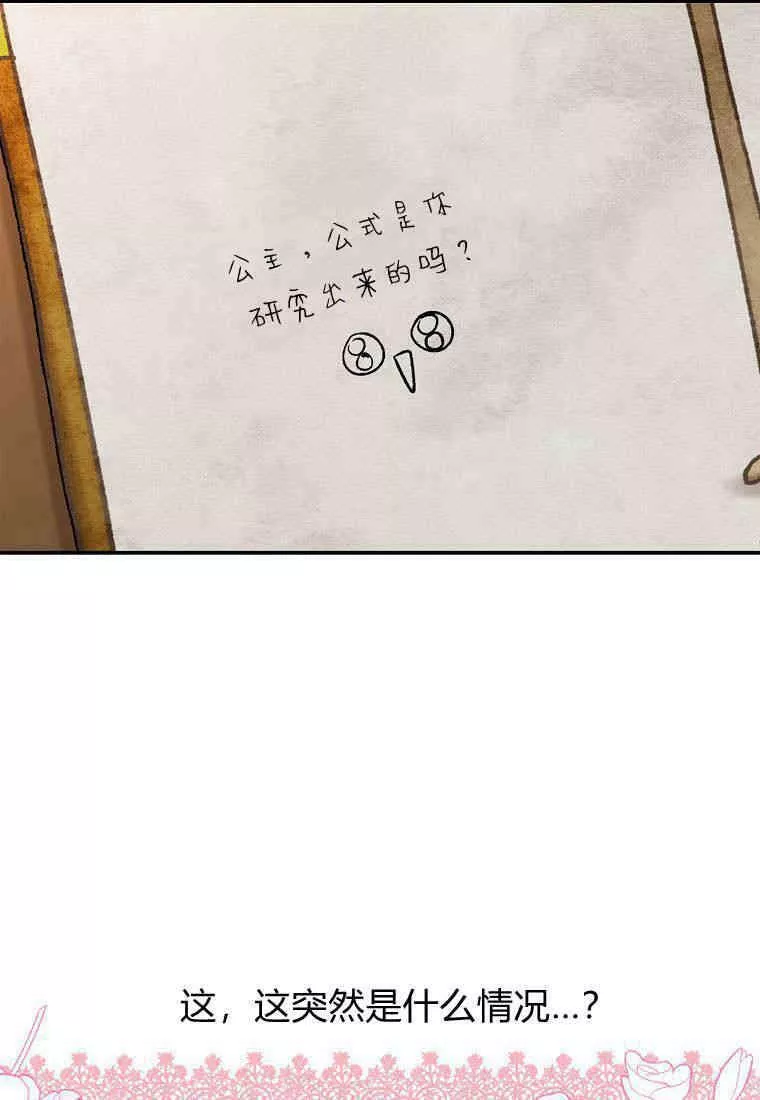 公主，公式是你
研究出来的吗？
这，这突然是什么情况...？